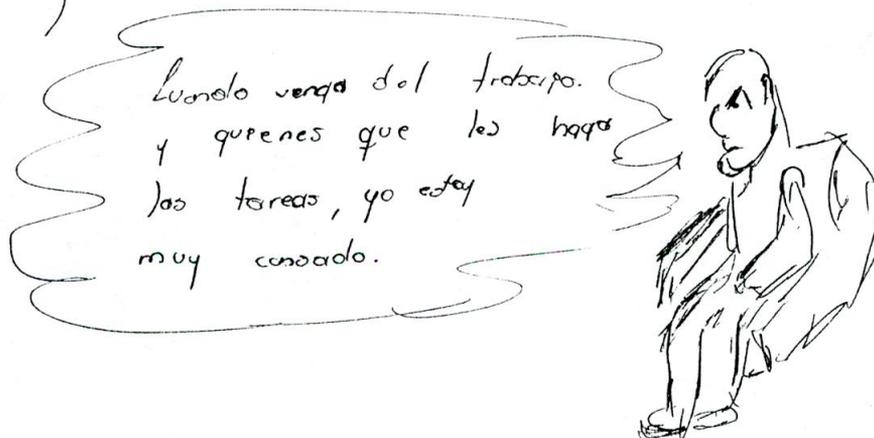 Cuando vengo del trabajo.
y quienes que les haga
las tareas, yo estoy
muy cansado.